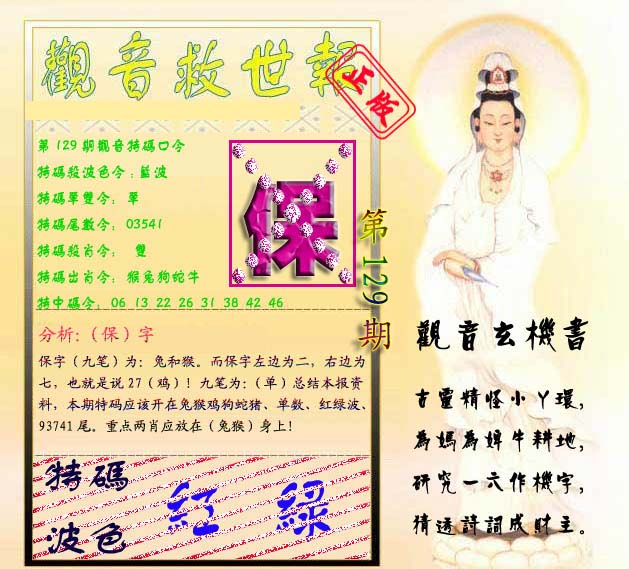 觀音救世報
正版
第129期觀音特碼口令
特碼殺波色令:藍波
特碼單雙令: 單
特碼尾數令: 03541
特碼殺肖令: 雙
特碼出肖令: 猴兔狗蛇牛
特中碼令: 06 13 22 26 31 38 42 46
保
第129期
分析:(保)字
保字(九笔)为:兔和猴。而保字左边为二,右边为
七,也就是说27(鸡)!九笔为:(单)总结本报资
料,本期特码应该开在兔猴鸡狗蛇猪、单数、红绿波、
93741尾。重点两肖应放在(兔猴)身上!
特碼
波色
紅 綠
觀音玄機書
古靈精怪小丫環,
為媽為婢牛耕地,
研究一六作機字,
猜透詩詞成財主。